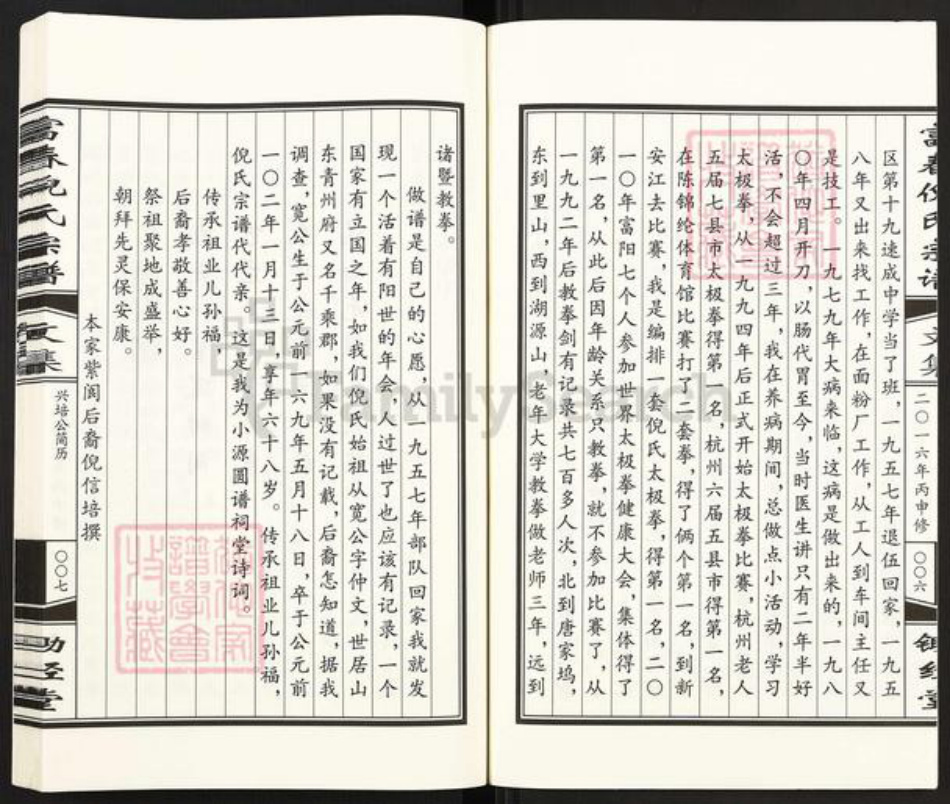 富春倪氏宗谱
文集
二〇一六年丙申修
〇〇六
经堂
区第十九速成中学当了班，一九五七年退伍回家，一九五
八年又出来找工作，在面粉厂工作，从工人到车间主任又
是技工。一九七九年大病来临，这病是做出来的，一九八
〇年四月开刀，以肠代胃至今，当时医生讲只有二年半好
活，不会超过三年，我在养病期间，总做点小活动，学习
太极拳，从一九九四年后正式开始太极拳比赛，杭州老人
五届七县市太极拳得第一名，杭州六届五县市得第一名，
在陈锦纶体育馆比赛打了二套拳，得了俩个第一名，到新
安江去比赛，我是编排一套倪氏太极拳，得第一名，二〇
一〇年富阳七个人参加世界太极拳健康大会，集体得了
第一名，从此后因年龄关系只教拳，就不参加比赛了，从
一九九二年后教拳剑有记录共七百多人次，北到唐家坞，
东到里山，西到湖源山，老年大学教拳做老师三年，远到
诸暨教拳。
做谱是自己的心愿，从一九五七年部队回家我就发
现一个活着有阳世的年会，人过世了也应该有记录，一个
国家有立国之年，如我们倪氏始祖从宽公字仲文，世居山
东青州府又名千乘郡，如果没有记载，后裔怎知道，据我
调查，宽公生于公元前一六九年五月十八日，卒于公元前
一〇二年一月十三日，享年六十八岁。传承祖业儿孙福，
倪氏宗谱代代亲。这是我为小源圆谱祠堂诗词。
传承祖业儿孙福，
后裔孝敬善心好。
祭祖聚地成盛举，
朝拜先灵保安康。
本家紫阆后裔倪信培撰
富春倪氏宗谱
文集
兴培公简历
〇〇七
经堂
FamilySearch